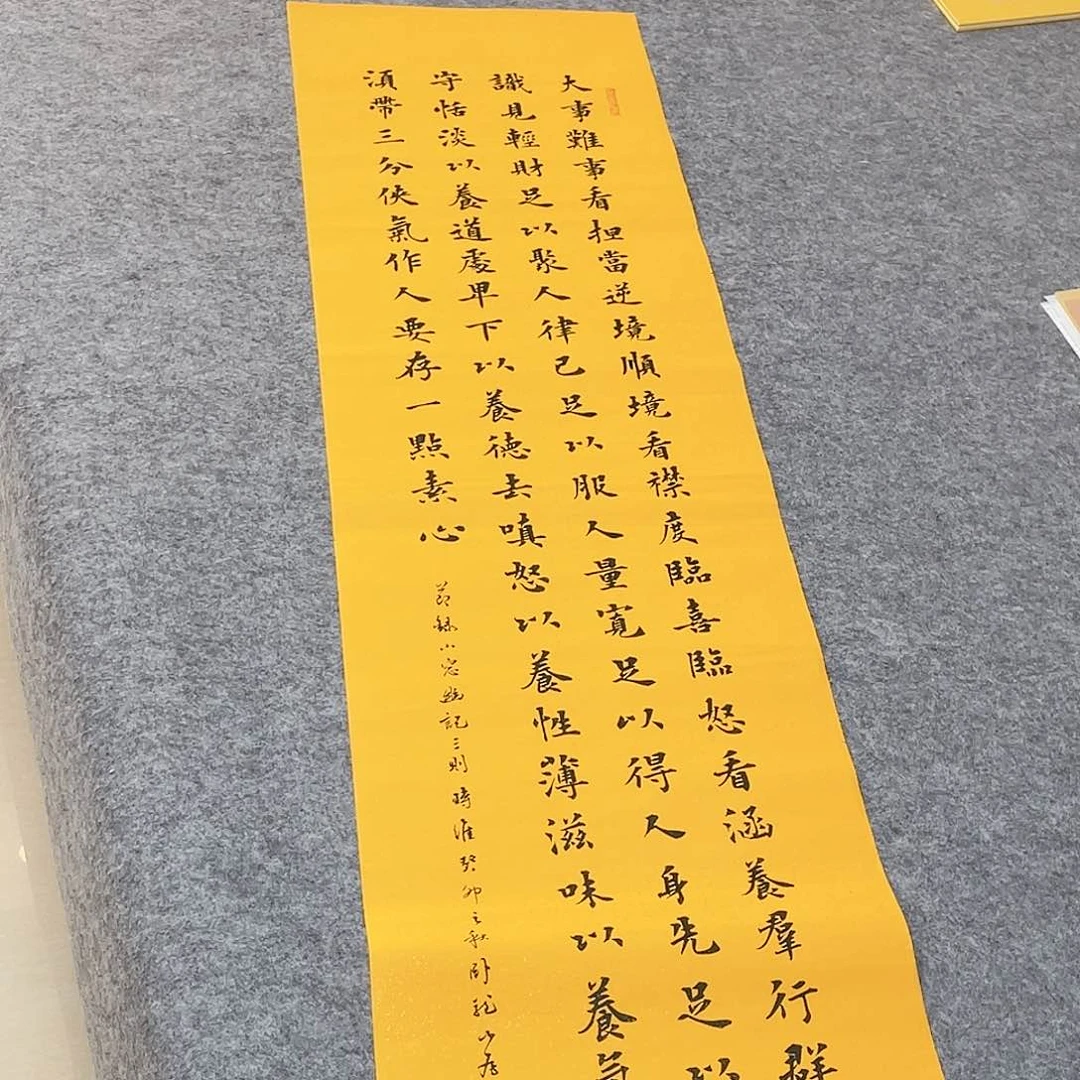 大事難事看担當逆境順境看襟度臨喜臨怒看涵養羣行群
識見輕財足以聚人律己足以服人量寬足以得人身先足以
守恬淡以養道處卑下以養德去嗔怒以養性薄滋味以養氣
須帶三分俠氣作人要存一點素心
節錄小窗幽記三則時維癸卯之秋卧龍山